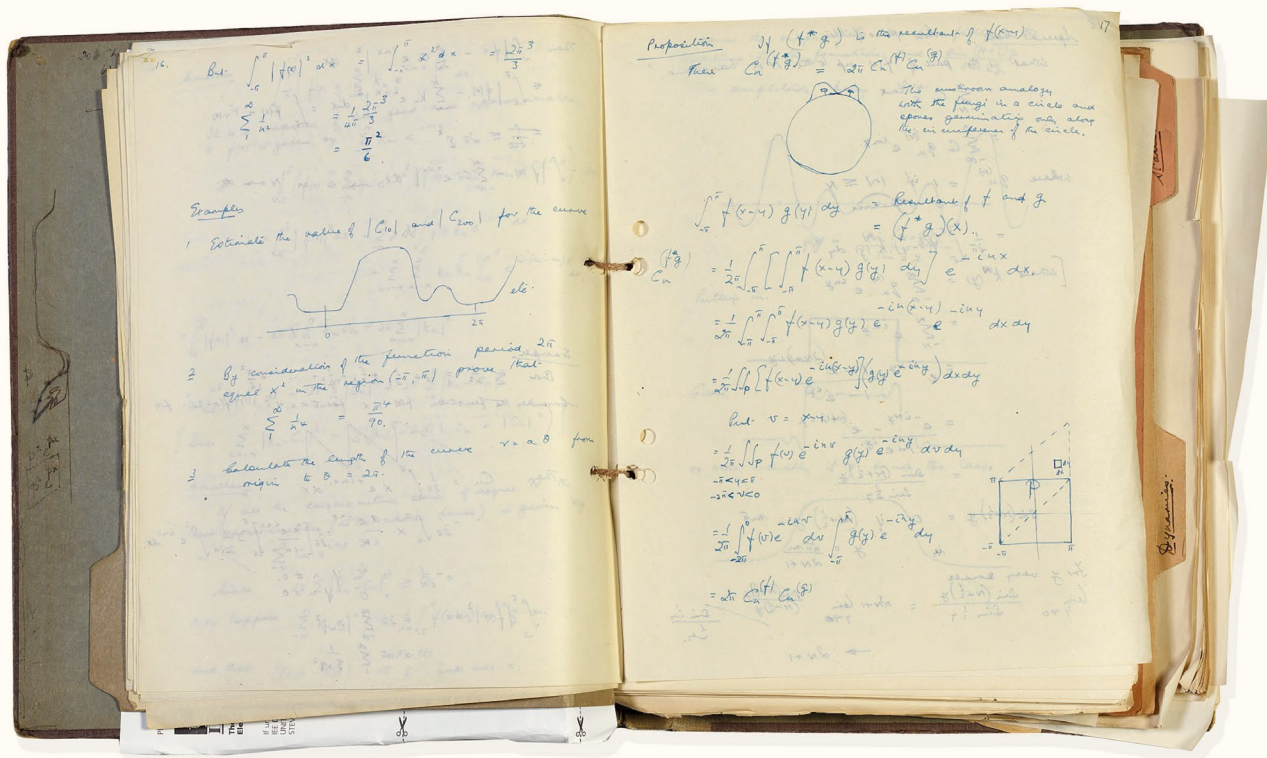 16.
But ∫_{-π}^{π} |f(x)|² dx = ∫_{-π}^{π} x² dx = 2π³/3
∑_1^∞ 1/n² = 1/4π 2π³/3
= π²/6.
Examples
1 Estimate the value of |C10| and |C200| for the curve
etc.
0 2π
2 By consideration of the function period 2π
equal x² in the region (-π, π) prove that
∑_1^∞ 1/n⁴ = π⁴/90.
3 Calculate the length of the curve r = a θ from
origin to θ = 2π.
17
Proposition If (f*g) is the resultant of f(x-y)
Then Cn^(f*g) = 2π Cn^(f) Cn^(g)
The mushroom analogy
with the fungi in a circle and
spores germinating only along
the circumference of the circle.
∫_{-π}^{π} f(x-y) g(y) dy = Resultant of f and g
= (f*g)(x).
Cn^(f*g) = 1/2π ∫_{-π}^{π} [∫_{-π}^{π} f(x-y) g(y) dy] e^{-inx} dx
= 1/2π ∫_{-π}^{π} ∫_{-π}^{π} f(x-y) g(y) e^{-in(x-y)} e^{-iny} dx dy
= 1/2π ∫∫_P [f(x-y) e^{-in(x-y)}] (g(y) e^{-iny}) dx dy
Put v = x-y
= 1/2π ∫∫_P f(v) e^{-inv} g(y) e^{-iny} dv dy
-π<y<π
-2π<v<0
= 1/2π ∫_{-2π}^{0} f(v) e^{-inv} dv ∫_{-π}^{π} g(y) e^{-iny} dy
= 2π Cn^(f) Cn^(g)
π
P
-π
-π π
Dynamics.